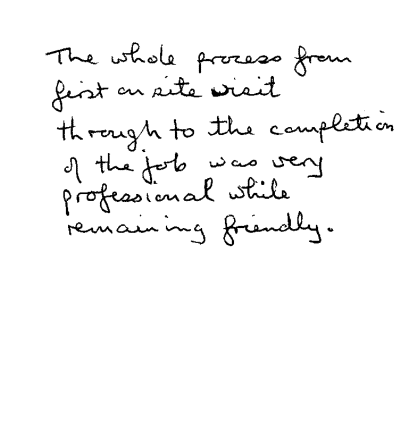 The whole process from
first on site visit
through to the completion
of the job was very
professional while
remaining friendly.